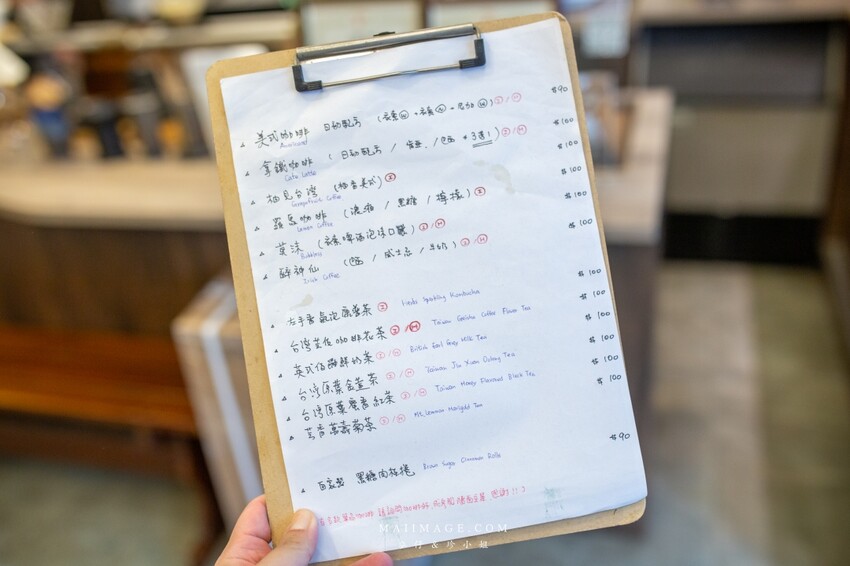 美式咖啡 日初配方 I/H $90
Americano
拿鐵咖啡 (日初配方 / 3選1) I/H $100
Cafe Latte
柚見台灣 (柚香美式) I $100
Grapefruit Coffee
盜馬咖啡 (濃糖 / 黑糖 / 檸檬) I $100
Lemon Coffee
黃沫 (啤酒泡沫口感) I/H $100
Bubbles
醉神仙 (威士忌 / 牛奶) I/H $100
Irish Coffee
左手香氣泡康普茶 I Herbs Sparkling Kombucha $100
台灣藝伎咖啡花茶 I/H Taiwan Geisha Coffee Flower Tea $100
英式伯爵鮮奶茶 I/H British Earl Grey Milk Tea $100
台灣原葉金萱茶 I/H Taiwan Jin Xuan Oolong Tea $100
台灣原葉蜜香紅茶 I/H Taiwan Honey Flavored Black Tea $100
萬壽菊茶 I/H Marigold Tea $100
自家製 黑糖肉桂捲 Brown Sugar Cinnamon Rolls $90
MAIIMAGE.COM